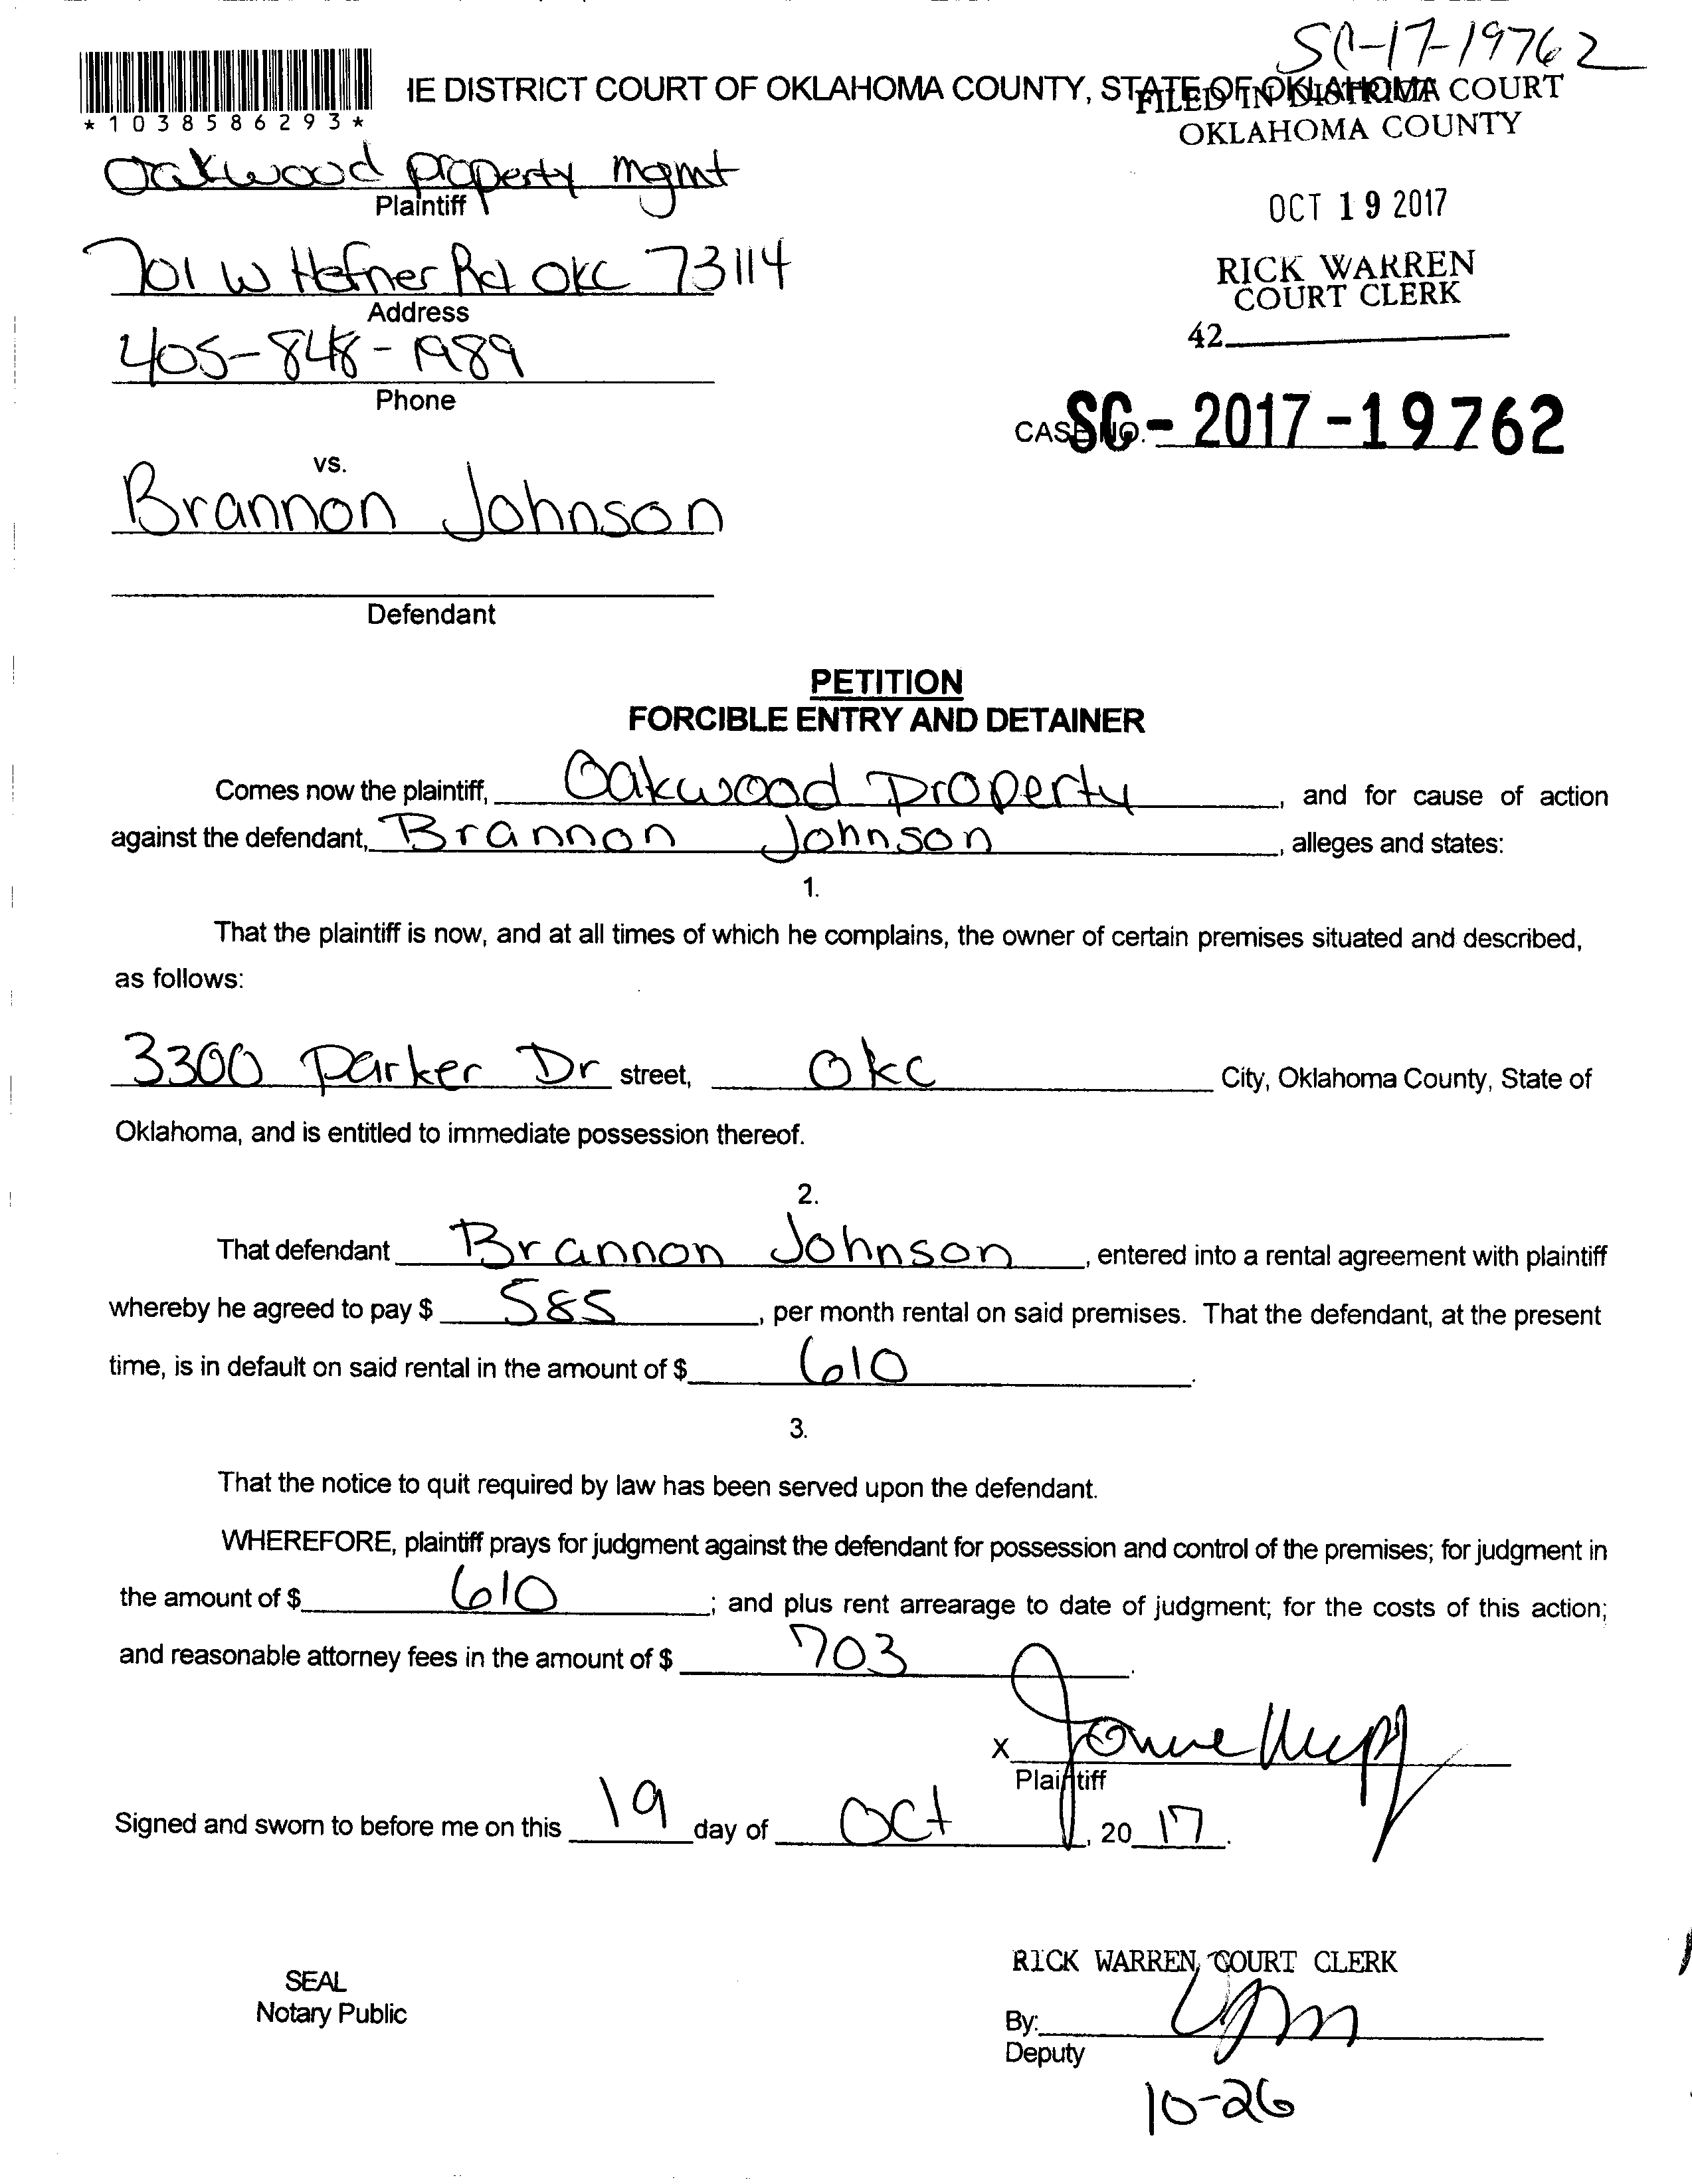 SC-17-19762
IE DISTRICT COURT OF OKLAHOMA COUNTY, STATE OF OKLAHOMA
FILED IN DISTRICT COURT
OKLAHOMA COUNTY
*1038586293*
Oakwood property mgmt
Plaintiff
OCT 19 2017
701 W Hefner Rd OKC 73114
Address
RICK WARREN
COURT CLERK
405-848-1989
Phone
42
CASE NO. SC-2017-19762
vs.
Brannon Johnson
Defendant
PETITION
FORCIBLE ENTRY AND DETAINER
Comes now the plaintiff, Oakwood Property, and for cause of action
against the defendant, Brannon Johnson, alleges and states:
1.
That the plaintiff is now, and at all times of which he complains, the owner of certain premises situated and described,
as follows:
3300 Parker Dr street, OKC City, Oklahoma County, State of
Oklahoma, and is entitled to immediate possession thereof.
2.
That defendant Brannon Johnson, entered into a rental agreement with plaintiff
whereby he agreed to pay $ 585, per month rental on said premises. That the defendant, at the present
time, is in default on said rental in the amount of $ 610.
3.
That the notice to quit required by law has been served upon the defendant.
WHEREFORE, plaintiff prays for judgment against the defendant for possession and control of the premises; for judgment in
the amount of $ 610; and plus rent arrearage to date of judgment; for the costs of this action;
and reasonable attorney fees in the amount of $ 703.
X
Plaintiff
Signed and sworn to before me on this 19 day of Oct, 20 17.
RICK WARREN, COURT CLERK
SEAL
Notary Public
By:
Deputy
10-26